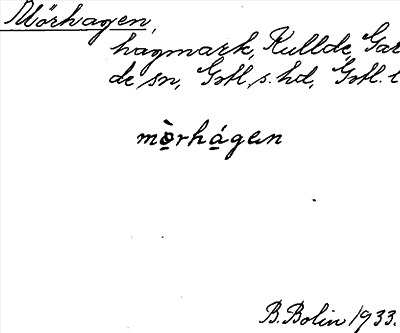 Mörhagen,
hagmark, Kullde, Gar
de sn, Gotl. s. hd, Gotl. l
mò̱rhá̱gen
B. Bolin 1933.